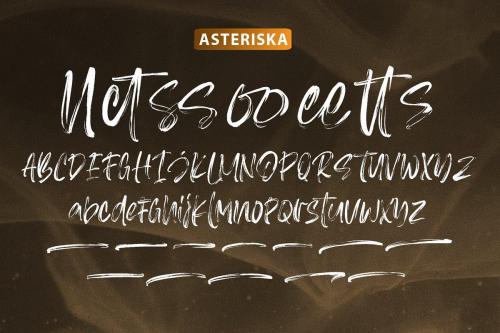 ASTERISKA
NctssooeettS
ABCDEFGHIJKLMNOPQRSTUVWXYZ
abcdefghijklmnopqrstuvwxyz